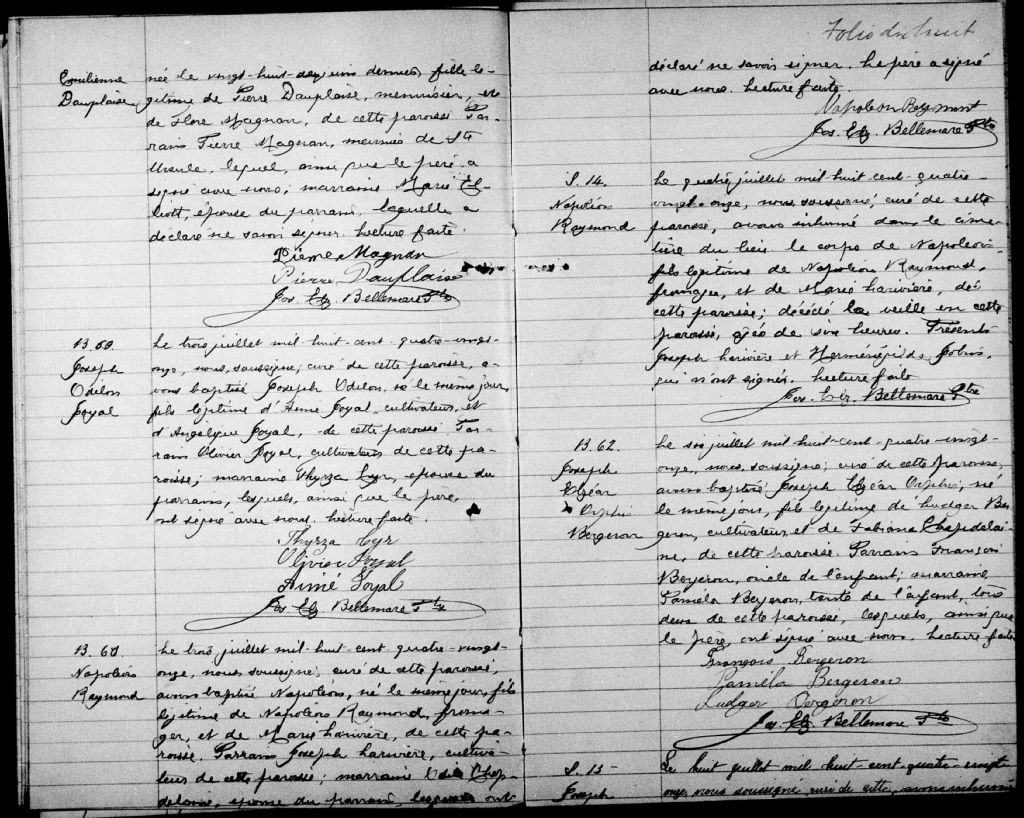 Emilienne
Dauplaise
née le vingt-huit de juin dernier, fille lé-
gitime de Pierre Dauplaise, menuisier, et
de Flore Magnan, de cette paroisse Par-
rain Pierre Magnan, meunier de Ste
Ursule, lequel, ainsi que le père, a
signé avec nous; marraine Marie El-
liott, épouse du parrain, laquelle a
déclaré ne savoir signer. Lecture faite.
Pierre Magnan
Pierre Dauplaise
Jos. Elz. Bellemare Ptre
B. 60.
Joseph
Odilon
Joyal
Le trois juillet mil huit cent quatre-vingt-
onze, nous, soussigné, curé de cette paroisse, a-
vons baptisé Joseph Odilon, né le même jour,
fils légitime d'Aimé Joyal, cultivateur, et
d'Angélique Joyal, de cette paroisse Par-
rain Olivier Joyal, cultivateur de cette pa-
roisse; marraine Thyrza Cyr, épouse du
parrain, lesquels, ainsi que le père,
ont signé avec nous. Lecture faite.
Thyrza Cyr
Olivier Joyal
Aimé Joyal
Jos Elz Bellemare Ptre
B. 61.
Napoléon
Raymond
Le trois juillet mil huit cent quatre-vingt-
onze, nous, soussigné, curé de cette paroisse,
avons baptisé Napoléon, né le même jour, fils
légitime de Napoléon Raymond, froma-
ger, et de Marie Larivière, de cette pa-
roisse. Parrain Joseph Larivière, cultiva-
teur de cette paroisse; marraine Chap-
delaine, épouse du parrain, lesquels ont
Folio dix huit
déclaré ne savoir signer. Le père a signé
avec nous. Lecture faite.
Napoleon Raymont
Jos. Elz. Bellemare Ptre
S. 14.
Napoléon
Raymond
Le quatre juillet mil huit cent quatre-
vingt-onze, nous, soussigné, curé de cette
paroisse, avons inhumé dans le cime-
tière du lieu le corps de Napoléon
fils légitime de Napoléon Raymond,
fromager, et de Marie Larivière, de
cette paroisse; décédé la veille en cette
paroisse, âgé de six heures. Présents
Joseph Larivière et Herménégilde
qui n'ont signés. Lecture faite
Jos. Elz. Bellemare Ptre
B. 62.
Joseph
Elzéar
Orphir
Bergeron
Le six juillet mil huit cent quatre-vingt-
onze, nous, soussigné, curé de cette paroisse,
avons baptisé Joseph Elzéar Orphir, né
le même jour, fils légitime de Ludger Ber-
geron, cultivateur, et de Fabiana Chapdelai-
ne, de cette paroisse. Parrain François
Bergeron, oncle de l'enfant; marraine,
Paméla Bergeron, tante de l'enfant, tous
deux de cette paroisse, lesquels, ainsi que
le père, ont signé avec nous. Lecture faite
François Bergeron
Paméla Bergeron
Ludger Bergeron
Jos. Elz. Bellemare Ptre
S. 15
Joseph
Le huit juillet mil huit-cent quatre-vingt
onze, nous soussigné, curé de cette, avons inhumé